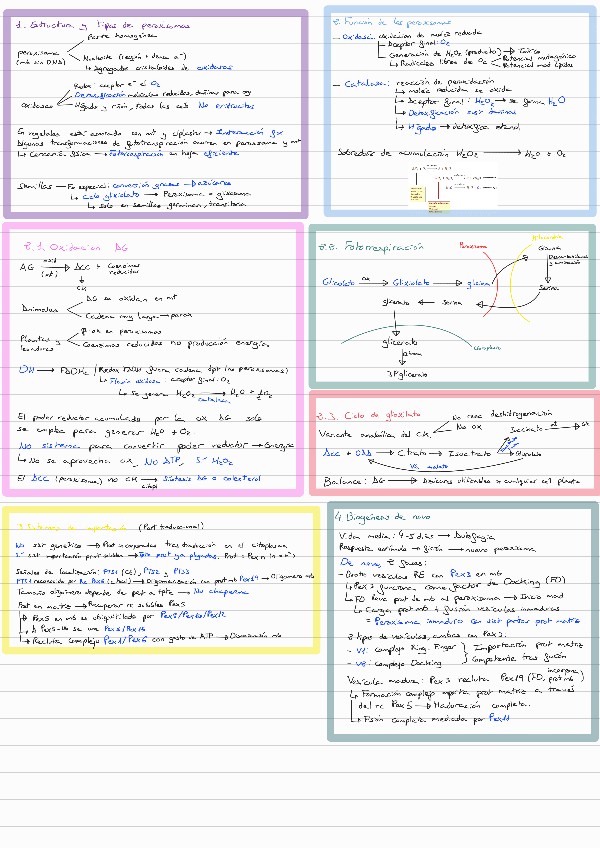 1. Estructura y tipos de peroxisomas
Parte homogénea
peroxisoma
(mb sin DNA)
Nucleoide (región + densa e-)
↳ Agregados cristaloides de oxidasas
Redox: aceptor e- el O2
Oxidasas
Detoxificación moléculas reducidas, dañinas para org
Hígado y riñón, todas las cels. No eritrocitos
En vegetales está asociado con mt y cloroplastos → Interacción fx
Algunas transformaciones de fotorrespiración ocurren en peroxisoma y mt
↳ Cercanía física → Fotorrespiración en hojas eficiente
Semillas → Fx especial: conversión grasas → Azúcares
↳ Ciclo glioxilato → Peroxisoma = glioxisoma
↳ Solo en semillas germinan, transitorio
2. Función de los peroxisomas
- Oxidasa: oxidación de moléc reducida
Aceptor final: O2
Generación de H2O2 (producto) → Tóxico
↳ Radicales libres de O2
Potencial mutagénico
Potencial mod lípidos
- Catalasa: reacción de peroxidación
↳ molec reducida se oxida
↳ Aceptor final: H2O2 → se forma H2O
↳ Detoxificación
↳ Hígado → detoxifica etanol
Sobredosis de acumulación H2O2 → H2O + O2
2.1. Oxidación AG
AG → ACC + Coenzimas reducidas
(mt)
CK
Animales
AG se oxidan en mt
Cadena muy larga → perox
Plantas y levaduras
β ox en peroxisomas
Coenzimas reducidas no producción energía
DH → FADH2 (Redox FADH fuera cadena tpt (no peroxisomas)
↳ Flavin oxidasa: aceptor final: O2
↳ Se genera H2O2 → H2O + ½O2
catalasa
El poder reductor acumulado por la ox AG solo
se emplea para generar H2O + O2
No sistema para convertir poder reductor → Energía
↳ No se aprovecha ox, NO ATP, Sí H2O2
El ACC (peroxisoma) no CK → Síntesis AG o colesterol
2.2. Fotorrespiración
Peroxisoma
Glicolato → Glioxilato → glicina
Glicina
Serina
glicerato ← Serina
Cloroplasto
glicerato
3Pglicerato
2.3. Ciclo de glioxilato
Variante anabólica del CK
No reac deshidrogenación
No OX
Isocitrato
Acc + OAA → Citrato → Isocitrato → Glioxilato
malato
Balance: AG → Azúcares utilizados x cualquier cel planta
3. Sistemas de importación (Post traduccional)
No sist genético → Prot incorporadas tras traducción en el citoplasma
Señales de localización: PTS1 (Ct), PTS2 y PTS3
PTS1 reconocido por Rc Pex5 (citosol) → Oligomerización con prot mb Pex14 → Oligómero mb
Tamaño oligómero depende de prot a tpte → No chaperona
Prot en matriz → Recuperar rc solubles Pex5
↳ Pex5 en mb es ubiquitilado por Pex2/Pex10/Pex12
↳ Recluta complejo Pex1/Pex6 con gasto de ATP → Disociación mb
4. Biogénesis de novo
Vida media: 4-5 días → Autofagia
De novo: 2 fases:
- Brote vesículas RE con Pex3 en mb
↳ Pex3 funciona como factor de Docking (FD)
↳ FD lleve prot de mb al peroxisoma → Inicio mad
↳ Carga prot mb y fusión vesículas inmaduras
= Peroxisoma inmaduro con sist portar prot matriz
2 tipos de vesículas, ambas con Pex3:
- V1: Complejo Ring-Finger
- V2: Complejo Docking
Importación prot matriz
Competente tras fusión
Vesícula madura: Pex3 recluta Pex19 (FD, incorpora prot mb)
↳ Formación complejo importa prot matriz a través
del rc Pex5 → Maduración completa
↳ Fisión completa mediada por Pex11